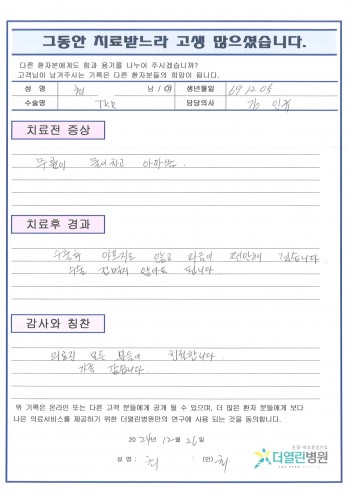 그동안 치료받느라 고생 많으셨습니다.
다른 환자분에게도 함과 용기를 나누어 주시겠습니까?
고객님이 남겨주시는 기록은 다른 환자분들의 희망이 됩니다.
성 명 최 남 / 여 생년월일 69.12.05
수술명 TKR 담당의사 김
치료전 증상
무릎이 아파
치료후 경과
아프지도 않고 마음이 편안해 졌습니다
않아도 됩니다
감사와 칭찬
의료진 모든 분들이 친절합니다.
가족 같습니다.
위 기록은 온라인 또는 다른 고객 분들에게 공개 될 수 있으며, 더 많은 환자 분들에게 보다
나은 의료서비스를 제공하기 위한 더열린병원만의 연구에 사용 되는 것을 동의합니다.
2024년 12월 26일
성 명 : 최 (인) 최
더열린병원